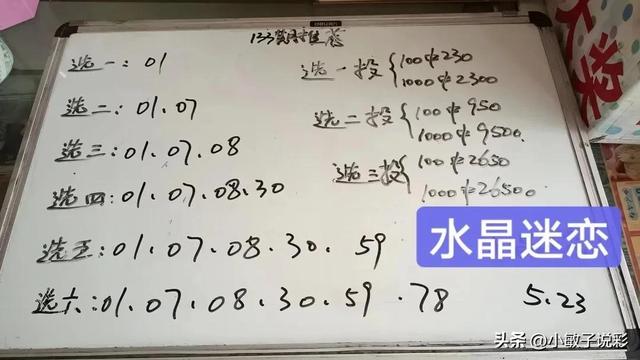 133期推荐
选一：01
选二：01.07
选三：01.07.08
选四：01.07.08.30
选五：01.07.08.30.59
选六：01.07.08.30.59.78
选一投{100中230
1000中2300
选二投{100中950
1000中9500.
选三投{100中2650
1000中26500
水晶迷恋
5.23
大奖
头条 @小敏子说彩